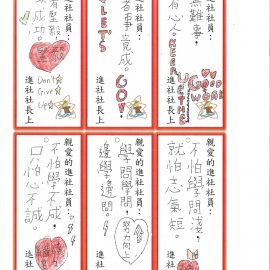 親愛的進社社員：
不怕學問淺，
就怕志氣短。
進社社長上
親愛的進社社員：
學問學問，
邊學邊問。
努力向上
進社社長上
親愛的進社社員：
不怕學不成，
只怕心不誠。
進社社長上
社員：
無難事，
有心人。
KEEP
UP THE
GOOD
WORK
進社社長上
社員：
者事竟成。
LET'S
GO!
進社社長上
社員：
有堅毅，
成功。
Don't
Give
Up
進社社長上